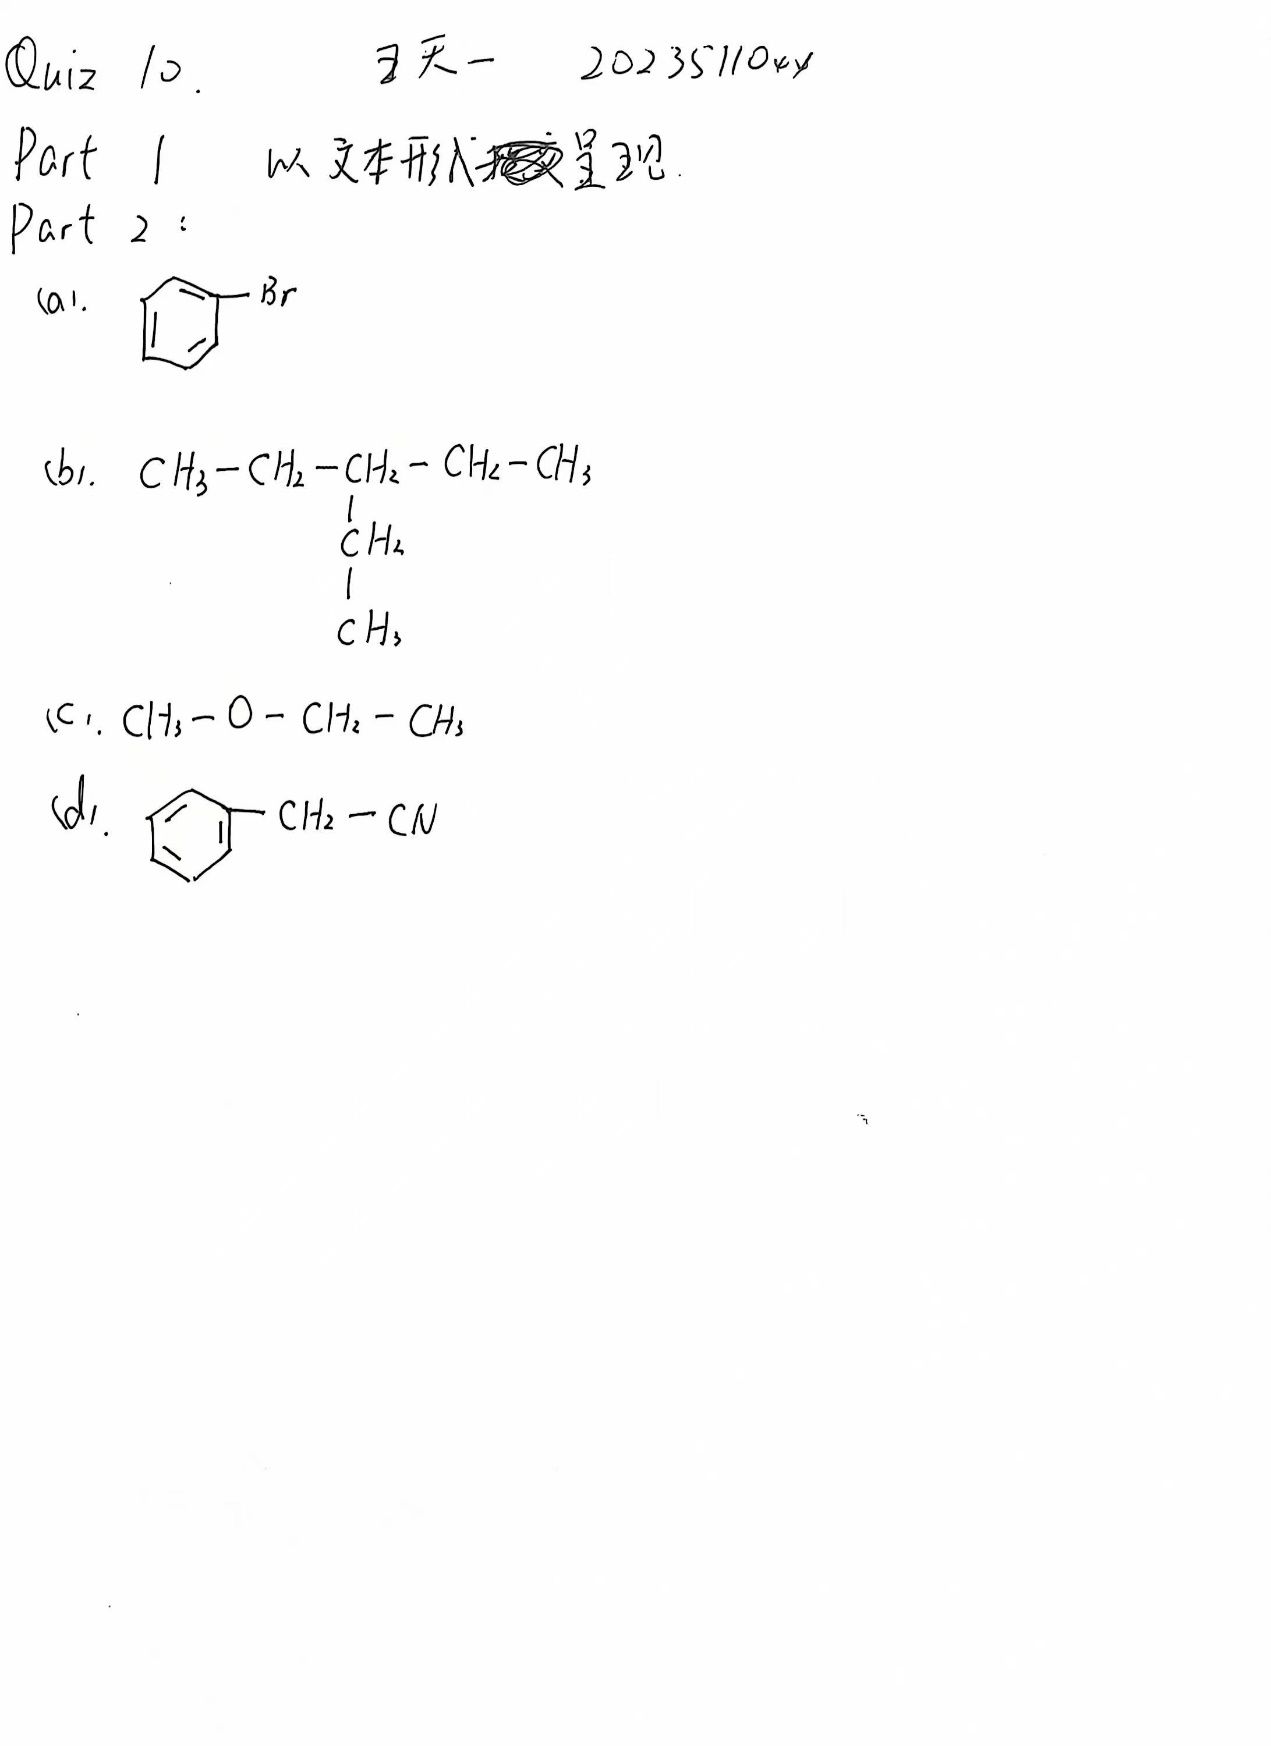 Quiz 10. 王天一 2023511044
Part 1 以文本形式呈现.
Part 2:
(a).
Br
(b). CH₃-CH₂-CH₂-CH₂-CH₃
CH₂
CH₃
(c). CH₃-O-CH₂-CH₃
(d). CH₂-CN